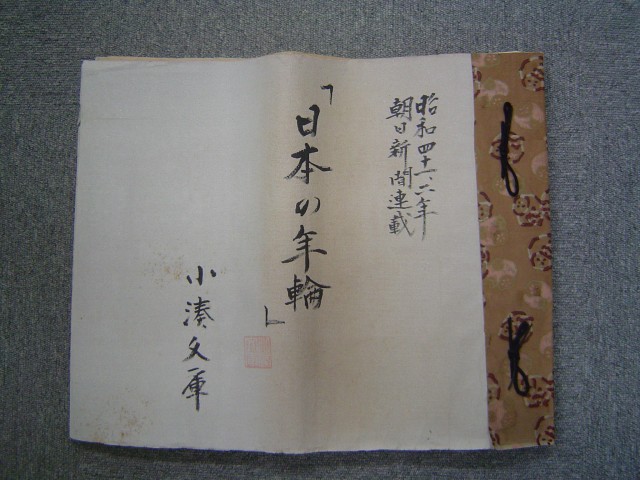 昭和四十一、二年
朝日新聞連載
「日本の年輪」
小湊文庫